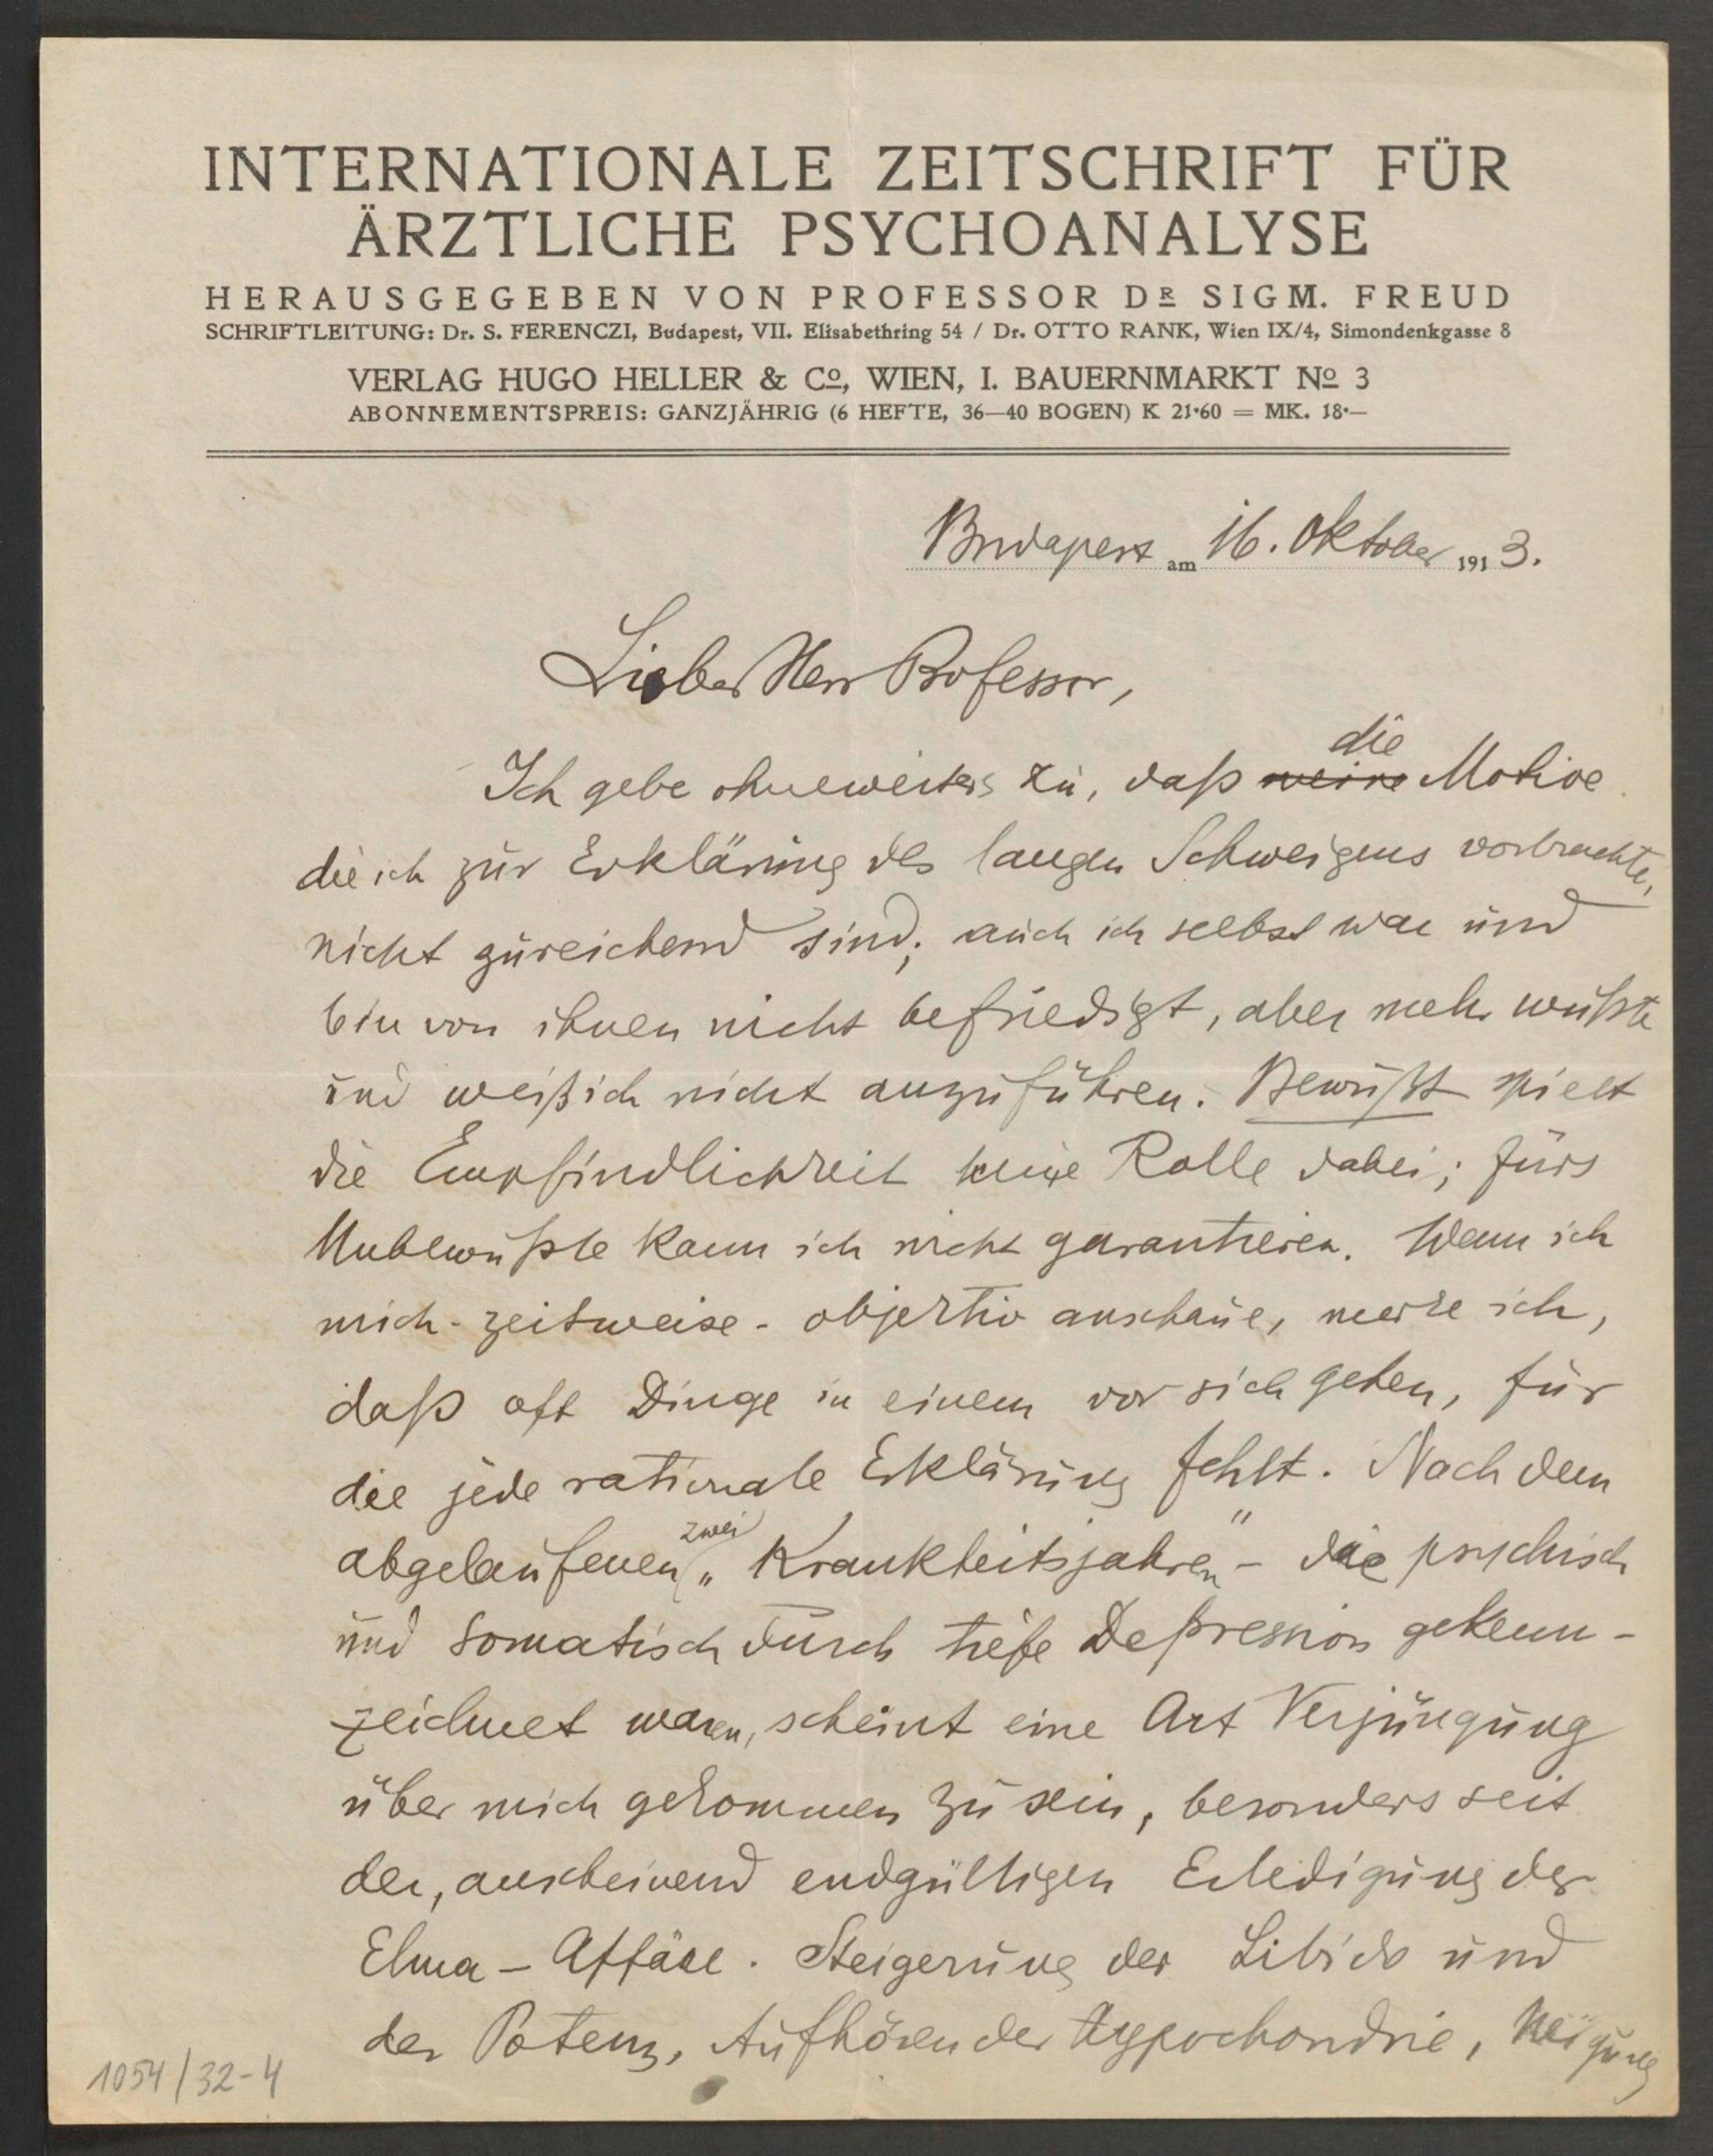 INTERNATIONALE ZEITSCHRIFT FÜR
ÄRZTLICHE PSYCHOANALYSE
HERAUSGEGEBEN VON PROFESSOR DR SIGM. FREUD
SCHRIFTLEITUNG: Dr. S. FERENCZI, Budapest, VII. Elisabethring 54 / Dr. OTTO RANK, Wien IX/4, Simondenkgasse 8
VERLAG HUGO HELLER & Co, WIEN, I. BAUERNMARKT No 3
ABONNEMENTSPREIS: GANZJÄHRIG (6 HEFTE, 36—40 BOGEN) K 21·60 = MK. 18·—
Budapest am 16. Oktober 1913.
Lieber Herr Professor,
die
Ich gebe ohneweiters zu, daß meine Motive
die ich zur Erklärung des langen Schweigens vorbrachte,
nicht zureichend sind; auch ich selbst war und
bin von ihnen nicht befriedigt, aber mehr wußte
und weiß ich nicht anzuführen. Bewußt spielt
die Empfindlichkeit keine Rolle dabei; fürs
Unbewußte kann ich nicht garantieren. Wenn ich
mich - zeitweise - objektiv anschaue, merke ich,
daß oft Dinge in einem vor sich gehen, für
die jede rationale Erklärung fehlt. Nach den
zwei
abgelaufenen „Krankheitsjahren" - die psychisch
und somatisch durch tiefe Depression gekenn-
zeichnet waren, scheint eine Art Verjüngung
über mich gekommen zu sein, besonders seit
der, anscheinend endgültigen Erledigung der
Elma - Affäre. Steigerung der Libido und
der Potenz, Aufhören der Hypochondrie, Neigung
1054/32-4